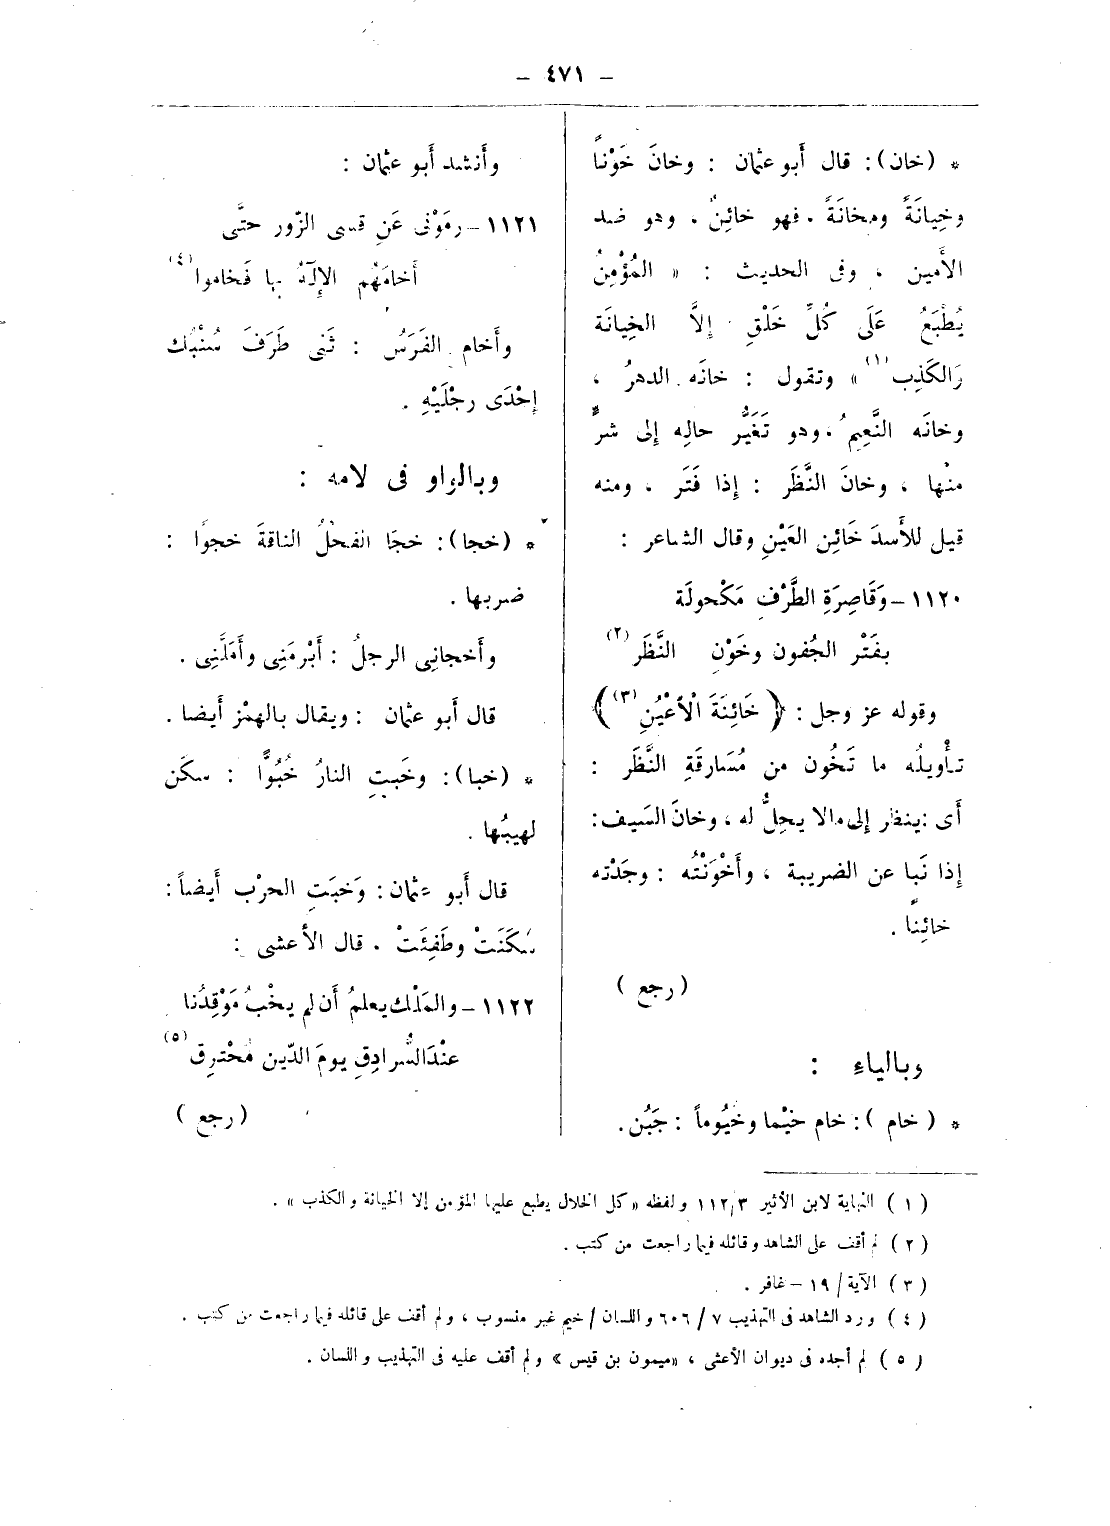 – ٤٧١ –
* (خان): قال أبو عثمان : وخانَ خَوْناً
وخِيانَةً ومخانَةً . فهو خائِنٌ . وهو ضد
الأَمين ، وفى الحديث : « المُؤْمِنُ
يُطْبَعُ عَلَى كُلِّ خَلْقٍ إلاَّ الخِيانَة
وَالكَذِب (١) » وتقول : خانَه الدهرُ ،
وخانَه النَّعِيمُ ، وهو تَغَيُّر حالِه إلى شرٍّ
منها ، وخانَ النَّظَر : إذا فَتَر ، ومنه
قيل للأَسدَ خَائِن العَيْنِ وقال الشاعر :
١١٢٠ – وَقَاصِرَةِ الطَّرْفِ مَكْحولَة
بفَتْر الجُفون وخَوْنِ النَّظَر (٢)
وقوله عز وجل : ﴿ خَائِنَةَ الْأَعْيُنِ (٣) ﴾
تأْويلُه ما تَخُون من مُسَارقَةِ النَّظَر :
أَى : ينظر إلى مالا يحِلُّ له ، وخانَ السَيف :
إذا نَبا عن الضريبة ، وأَخْوَنْتُه : وجَدْته
خائِناً .
( رجع )
وبالياءِ :
* ( خام ) : خام خيْما وخُيُوماً : جَبُن .
وأَنشد أَبو عثمان :
١١٢١ – رمَوْنى عَنِ قسى الزّور حتَّى
أَخامَهُم الإِلَهُ بها فَخاموا (٤)
وأَخام الفَرَسُ : ثَنى طَرَفَ سُنْبُك
إحْدَى رجْلَيْهِ .
وبالواو فى لامه :
* (خجا): خجَا الفحْلُ الناقةَ خجوًا :
ضربها .
وأَخجانِى الرجلُ : أَبْرمَنِى وأَمَلَّنِى .
قال أَبو عثمان : ويقال بالهمْز أَيضا .
* (خبا): وخَبتِ النارُ خُبُوًّا : سكَن
لهيبُها .
قال أَبو عثمان : وَخبَتِ الحرْب أَيضاً :
سَكَنَتْ وطَفِئَتْ . قال الأعشى :
١١٢٢ – والمَلْك يعلمُ أَن لم يخْبُ مَوْقِدُنا
عنْدَ السُّرادِقِ يومَ الدّين مُحْترِق (٥)
( رجع )
( ١ ) النهاية لابن الأثير ٣/١١٢ ولفظه « كل الخلال يطبع عليها المؤمن إلا الخيانة والكذب » .
( ٢ ) لم أقف على الشاهد وقائله فيما راجعت من كتب .
( ٣ ) الآية / ١٩ – غافر .
( ٤ ) ورد الشاهد فى التهذيب ٧ / ٦٠٦ واللسان / خيم غير منسوب ، ولم أقف على قائله فيما راجعت من كتب .
( ٥ ) لم أجده فى ديوان الأعشى ، « ميمون بن قيس » ولم أقف عليه فى التهذيب واللسان .